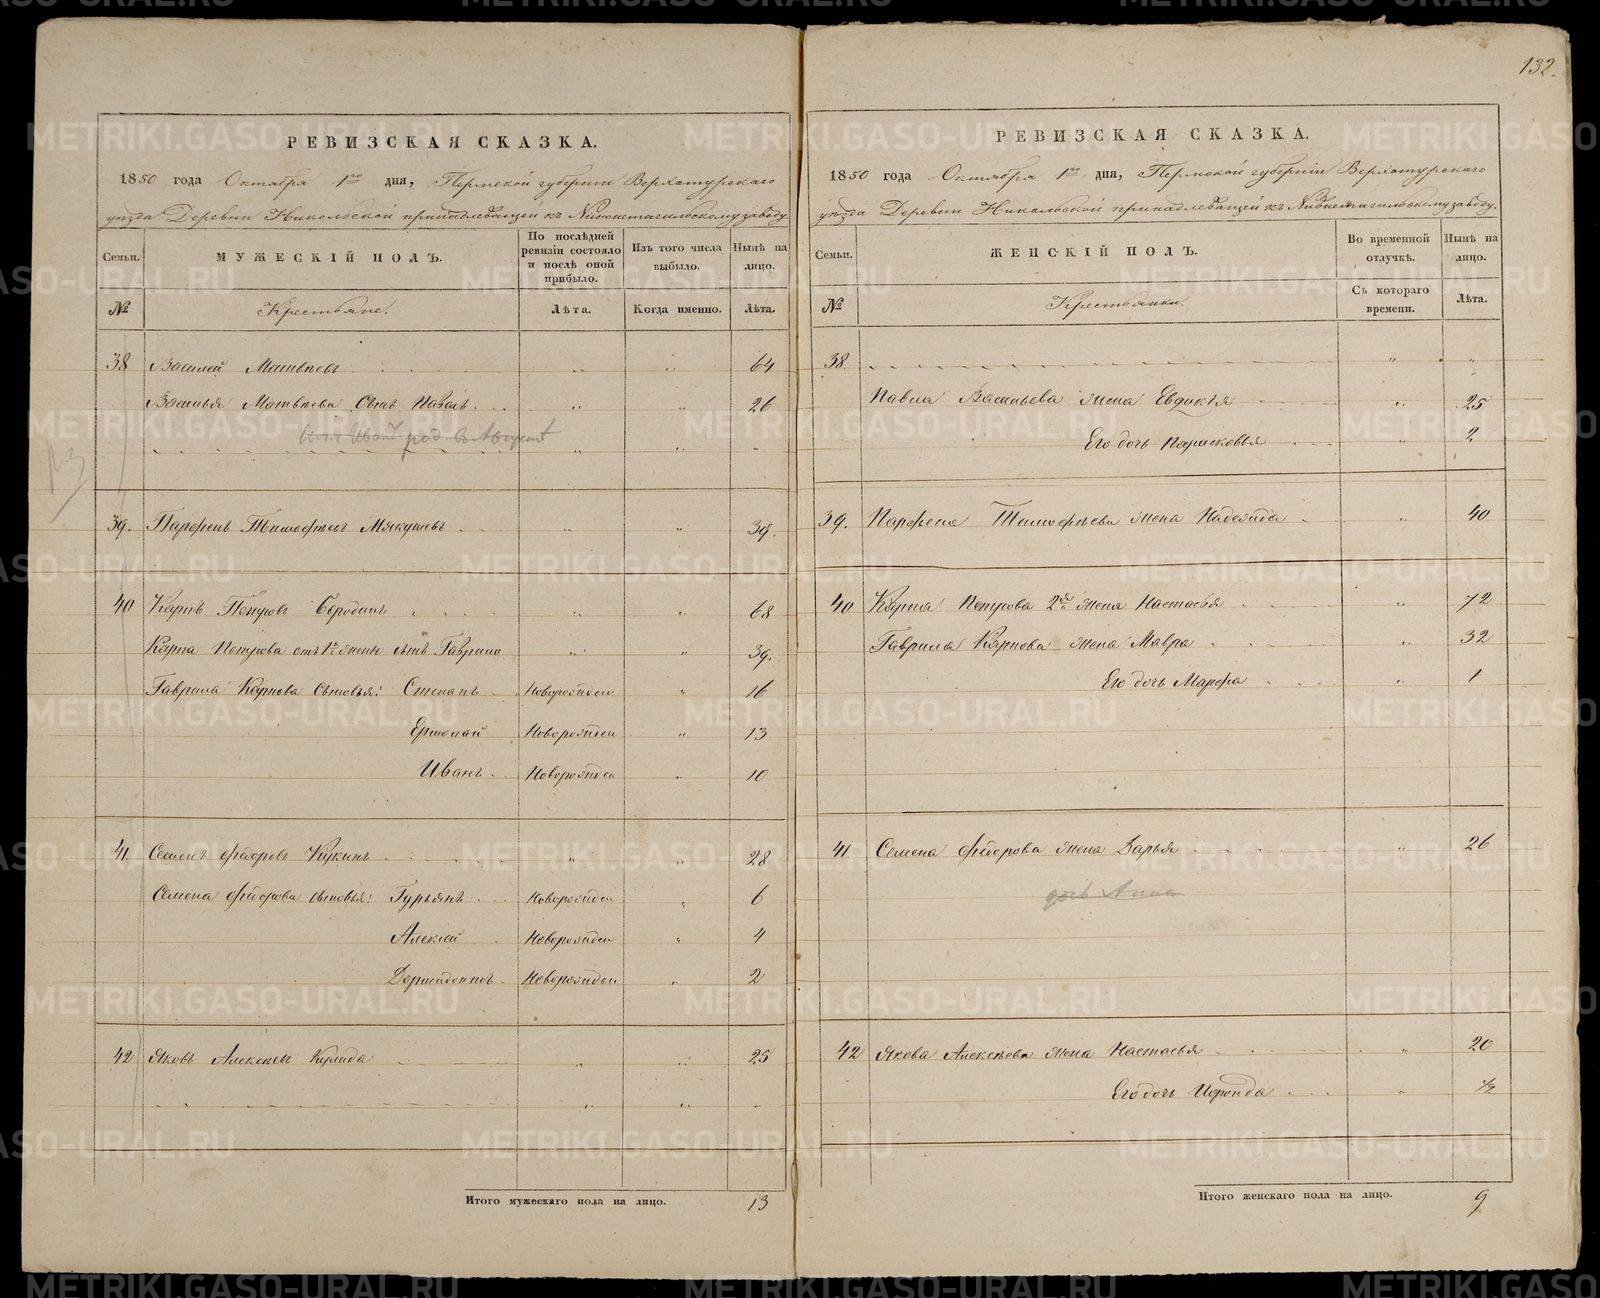 132.
РЕВИЗСКАЯ СКАЗКА.
1850 года Октября 1го дня, Пермской губернии Верхотурского
уѣзда Деревни Никольской принадлежащей къ Нижнетагильскому заводу.
Семьи.
МУЖЕСКІЙ ПОЛЪ.
По послѣдней ревизіи состояло и послѣ оной прибыло.
Изъ того числа выбыло.
Нынѣ на лицо.
№
Крестьяне.
Лѣта.
Когда именно.
Лѣта.
38 Василей Матвѣевъ 64
Василья Матвѣева сынъ Павелъ 26
сынъ Иванъ род. въ Августѣ
39. Парфенъ Тимофѣевъ Мякушевъ 39.
40 Карпъ Петровъ Бородинъ 68
Карпа Петрова отъ 1й жены сынъ Гаврило 39.
Гаврила Карпова сыновья: Степанъ Новорожден 16
Ермолай Новорожден 13
Иванъ Новорожден 10
41. Семенъ Федоровъ Кукинъ 28
Семена Федорова сыновья: Гурьянъ Новорожден 6
Алексей Новорожден 4
Новорожден 2
42 Яковъ Алексѣевъ 25
Итого мужескаго пола на лицо. 13
РЕВИЗСКАЯ СКАЗКА.
1850 года Октября 1го дня, Пермской губерніи Верхотурскаго
уѣзда Деревни Никольской принадлежащей къ Нижнетагильскому заводу.
Семьи.
ЖЕНСКІЙ ПОЛЪ.
Во временной отлучкѣ.
Нынѣ на лицо.
№
Крестьянки.
Съ котораго времени.
Лѣта.
38.
Павла Васильева жена Евдокія 25
Его дочь Парасковья 2
39. Парфена Тимофѣева жена Надежда 40
40 Карпа Петрова 2я жена Настасья 72
Гаврила Карпова жена Мавра 32
Его дочь Марфа 1
41. Семена Федорова жена Дарья 26
дочь Анна
42 Якова Алексѣева жена Настасья 20
Его дочь 1/2
Итого женскаго пола на лицо. 9
METRIKI.GASO-URAL.RU